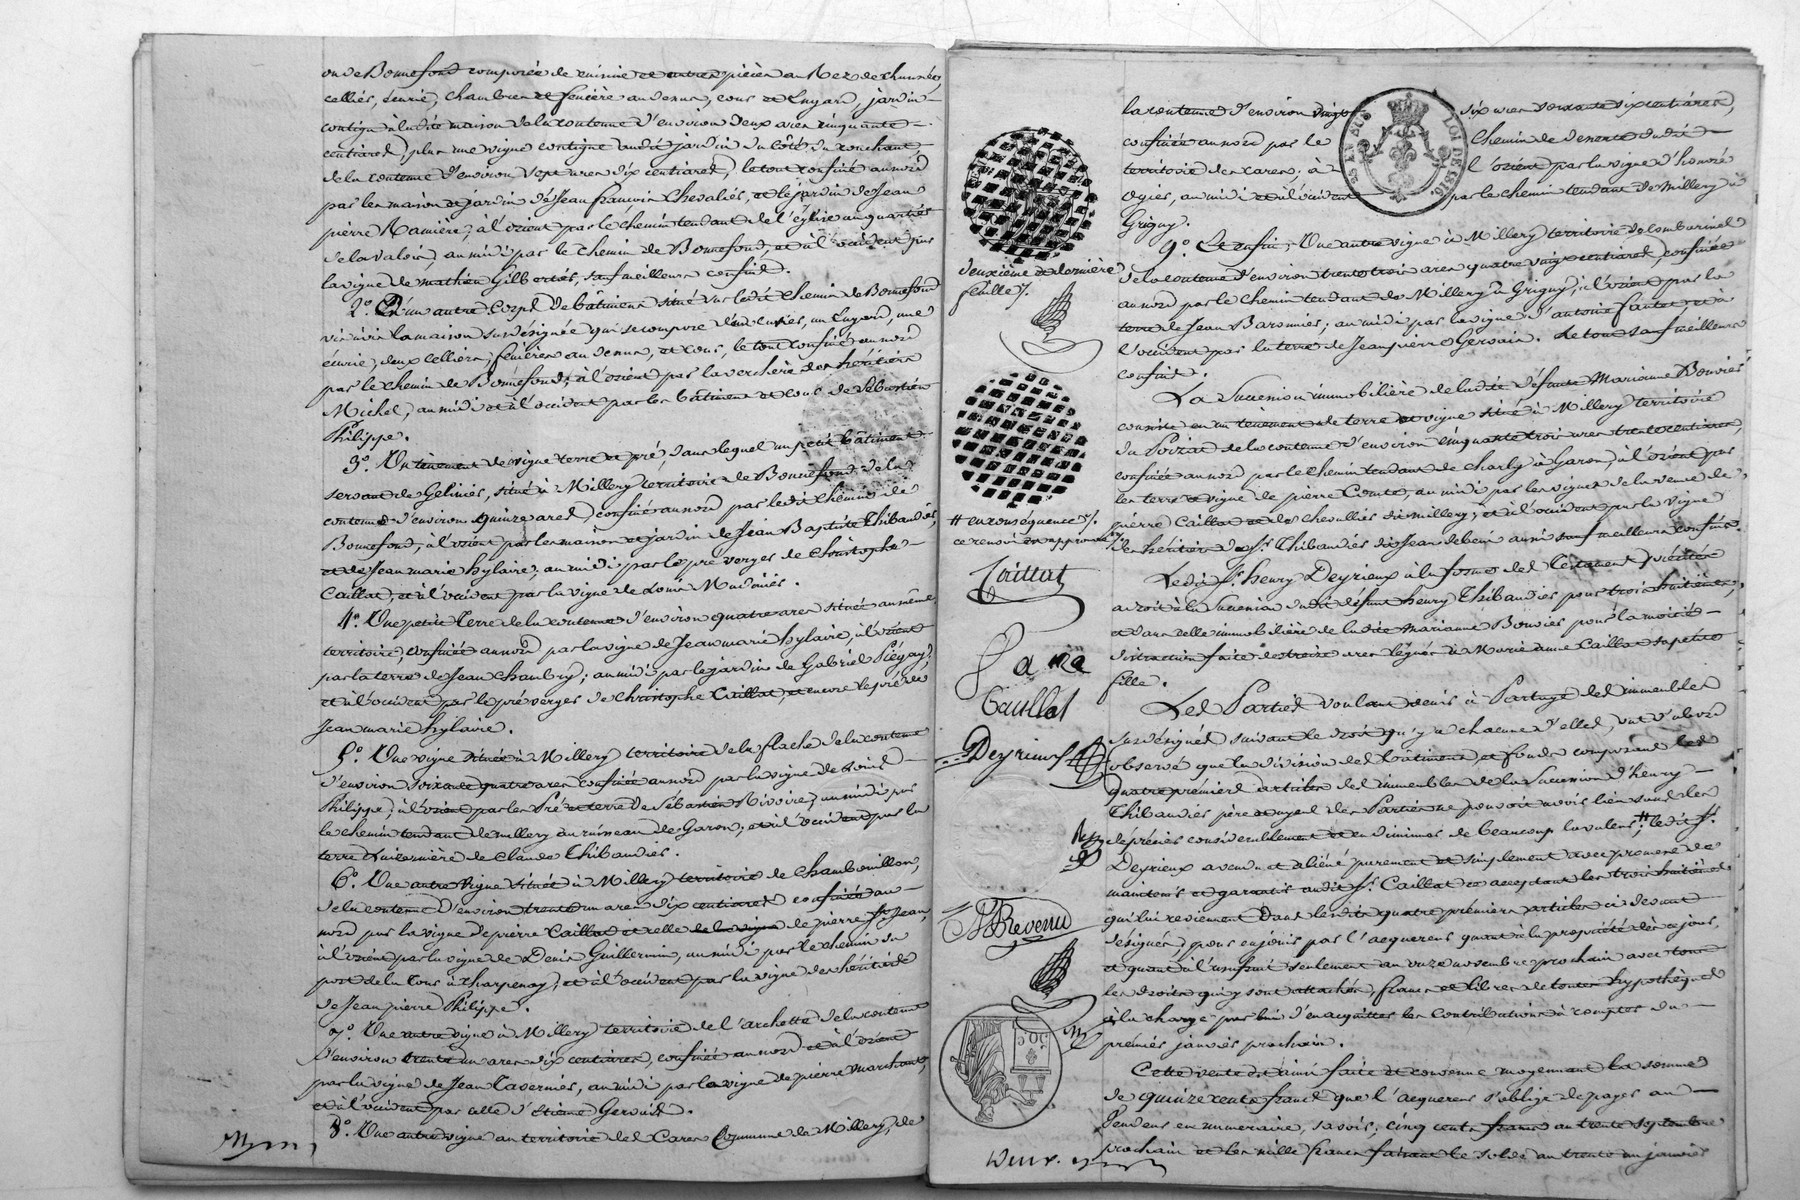 ou de Bonnefond composée de cuisine et autres pièces au Rez de chaussée,
celliér, écurie, chambres et feniére au dessus, cour et Ingard, jardin
contigu à ladite maison de la contenue d'environ deux ares cinquante
centiares, plus une vigne contigue audit jardin du côté du couchant
de la contenue d'environ sept ares dix centiares, le tout confiné au nord
par les maison et jardin de Jean françois Chevaliér, et le jardin de Jean
pierre Ramiére, à l'orient par le chemin tendant de l'église au quartiér
de la valois, au midi par le chemin de Bonnefond, et à l'occident par
la vigne de mathieu Gilbertés, sauf meilleurs confins.
2° D'un autre Corps de bâtimens situé sur ledit chemin de Bonnefond
vis à vis la maison sus désignée qui se compose d'un cuvier, un Ingard, une
écurie, deux celliers, feniéres au dessus, et cour, le tout confiné au nord
par le chemin de Bonnefond, à l'orient par la verchère des héritiérs
Michel, au midi et à l'occident par les bâtiment et cour de Sébastien
Philippe.
3°. Un ténement de vigne terre et pré, dans lequel un petit bâtiment
servant de Gelinier, situé à Millery territoire de Bonnefond de la
contenue d'environ quinze ares, confiné au nord par ledit chemin de
Bonnefond, à l'orient par les maison et jardin de Jean Baptiste Thibaudiér,
et de Jean marie hylaire, au midi par le pré verger de Christophe
Caillat, et à l'occident par la vigne de Louis
4°. Une petite terre de la contenue d'environ quatre ares située au même
territoire, confinée au nord par la vigne de Jean marie hylaire, à l'orient
par la terre de Jean Chambry, au midi par le jardin de Gabriel Piégay,
et à l'occident par le pré verger de Christophe Caillat, et encore le pré de
Jean marie hylaire.
5°. Une vigne située à Millery territoire de la flache de la contenue
d'environ soixante quatre ares confinée au nord par la vigne de
Philippe, à l'orient par les Pré et terre de Sébastien Rivoire, au midi par
le chemin tendant de millery au ruisseau de Garon, et à l'occident par la
terre de Claude Thibaudiér.
6°. Une autre vigne située à Millery territoire de Chambouillon,
de la contenue d'environ trente un ares dix centiares confinée au
nord par la vigne de pierre Caillat et celle de la vigne de pierre St. Jean,
à l'orient par la vigne de Denis Guillermin, au midi par le chemin du
port de la Tour à Charpenay, et à l'occident par la vigne des héritiérs
de Jean pierre Philippe.
7°. Une autre vigne à Millery territoire de l'archette de la contenue
d'environ trente un ares dix centiares, confinée au nord et à l'orient
par la vigne de Jean Taverniér, au midi par la vigne de pierre marchand,
et à l'occident par celle d'étienne Gervais.
8°. Une autre vigne au territoire des Cares Commune de Millery, de
deuxième et dernière
feuille
# en conséquence
ce renvoi est approuvé
Caillat
Jana
Caillat
Deyrieux
Revenu
25 EN SUS
LOI DE 1816
la contenue d'environ vingt six ares soixante dix centiares,
confinée au nord par le chemin de desserte dudit
territoire des cares, à l'orient par la vigne d'honoré
ogiér, au midi et à l'occident par le chemin tendant de Millery à
Grigny.
9°. Et enfin, Une autre vigne à Millery territoire de combarinel
de la contenue d'environ trente trois ares quatre vingt centiares, confinée
au nord par le chemin tendant de Millery à Grigny, à l'orient par la
terre de Jean Baronniér; au midi par la vigne d'antoine et à
l'occident par la terre de Jean pierre Gervais. Le tout sauf meilleurs
confins.
La Succession immobilière de ladite défunte Marianne Bouviér
consiste en un ténement de terre et vigne situé à Millery territoire
du Poizat de la contenue d'environ cinquante trois ares trente centiares,
confiné au nord par le chemin tendant de charly à Garon, à l'orient par
les terre et vigne de pierre Comte, au midi par les vignes de la veuve de
pierre Caillat et des chevaliérs de Millery, et à l'occident par la vigne
des héritiérs du Sr. Thibaudiér dit Jean de aussi sauf meilleurs confins.
Ledit Sr. henry Deyrieux à la forme des Testament précités
a droit à la Succession dudit défunt henry Thibaudiér pour trois huitièmes,
et dans celle immobilière de ladite Marianne Bouviér pour la moitié
distraction faite de treize ares légués à Marie anne Caillat sa petite
fille.
Les Parties voulant venir à Partage des immeubles
sus désignés suivant le droit qu'y a chacune d'elles, ont d'abord
observé que la division des bâtimens et fonds composant les
quatre prémiers articles des immeubles de la Succession d'henry
Thibaudiér père et ayeul des Parties ne pouvoit avoir lieu sans les
dépréciér considérablement et en diminuer de beaucoup la valeur; # ledit Sr.
Deyrieux a vendu et aliéné purement et simplement avec promesse de
maintenir et garantir audit Sr. Caillat ce acceptant les trois huitièmes
qui lui reviennent dans lesdits quatre prémiers articles ci devant
désignés, pour en jouir par l'acquereur quant à la propriété dès ce jour,
et quant à l'usufruit seulement au onze novembre prochain avec tous
les droits qui y sont attachés, francs et libres de toutes hypothèques
à la charge par lui d'en acquitter les contributions à compter du
prémiér janviér prochain.
Cette vente est ainsi faite et convenue moyennant la somme
de quinze cents francs que l'acquereur s'oblige de payer au
Vendeur en numeraire, savoir; cinq cents francs au trente septembre
prochain et les mille francs faisant le solde au trente un janviér